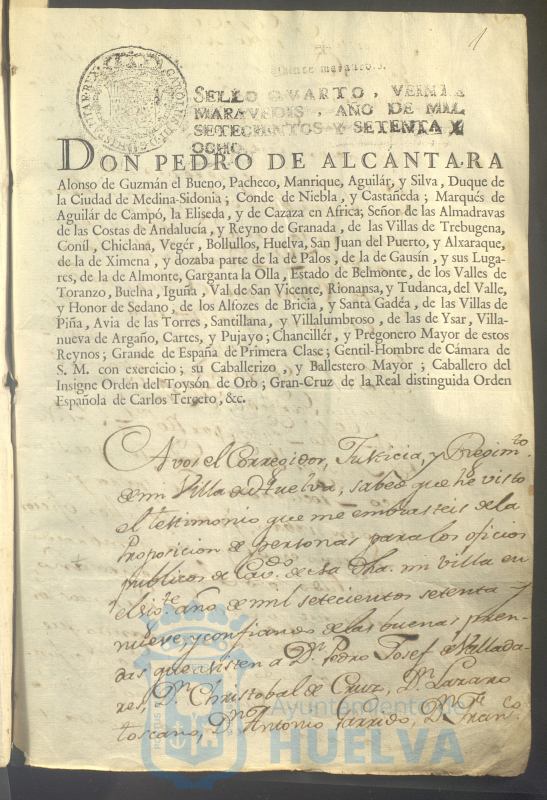 1
SELLO QVARTO, VEINTE
MARAVEDIS, AÑO DE MIL
SETECIENTOS Y SETENTA Y
OCHO.
DON PEDRO DE ALCÁNTARA
Alonso de Guzmán el Bueno, Pacheco, Manrique, Aguilár, y Silva, Duque de
la Ciudad de Medina-Sidonia; Conde de Niebla, y Castañeda; Marqués de
Aguilár de Campó, la Eliseda, y de Cazaza en Africa; Señor de las Almadravas
de las Costas de Andalucía, y Reyno de Granada, de las Villas de Trebugena,
Conil, Chiclana, Vegér, Bollullos, Huelva, San Juan del Puerto, y Alxaraque,
de la de Ximena, y dozaba parte de la de Palos, de la de Gausín, y sus Luga-
res, de la de Almonte, Garganta la Olla, Estado de Belmonte, de los Valles de
Toranzo, Buelna, Iguña, Val de San Vicente, Rionansa, y Tudanca, del Valle,
y Honor de Sedano, de los Alfozes de Bricia, y Santa Gadéa, de las Villas de
Piña, Avia de las Torres, Santillana, y Villalumbroso, de las de Ysar, Villa-
nueva de Argaño, Cartes, y Pujayo; Chancillér, y Pregonero Mayor de estos
Reynos; Grande de España de Primera Clase; Gentil-Hombre de Cámara de
S. M. con exercicio; su Caballerizo, y Ballestero Mayor; Caballero del
Insigne Orden del Toysón de Oro; Gran-Cruz de la Real distinguida Orden
Española de Carlos Tercero, &c.
A vos el Corregidor, Justicia, y Regim.to
de mi Villa de Huelva, sabed que he visto
el testimonio que me embiasteis de la
Proposicion de personas para los oficios
publicos de Cav.do de esa dha. mi villa en
el sig.te año de mil setecientos setenta y
nueve, y confiando de las buenas pren-
das que asisten a D.n Pedro Josef de Vallada-
res, D.n Christobal de Cruz, D.n Lazaro
toscano, D.n Antonio Garrido, D.n Fran.co
Ayuntamiento de
HUELVA